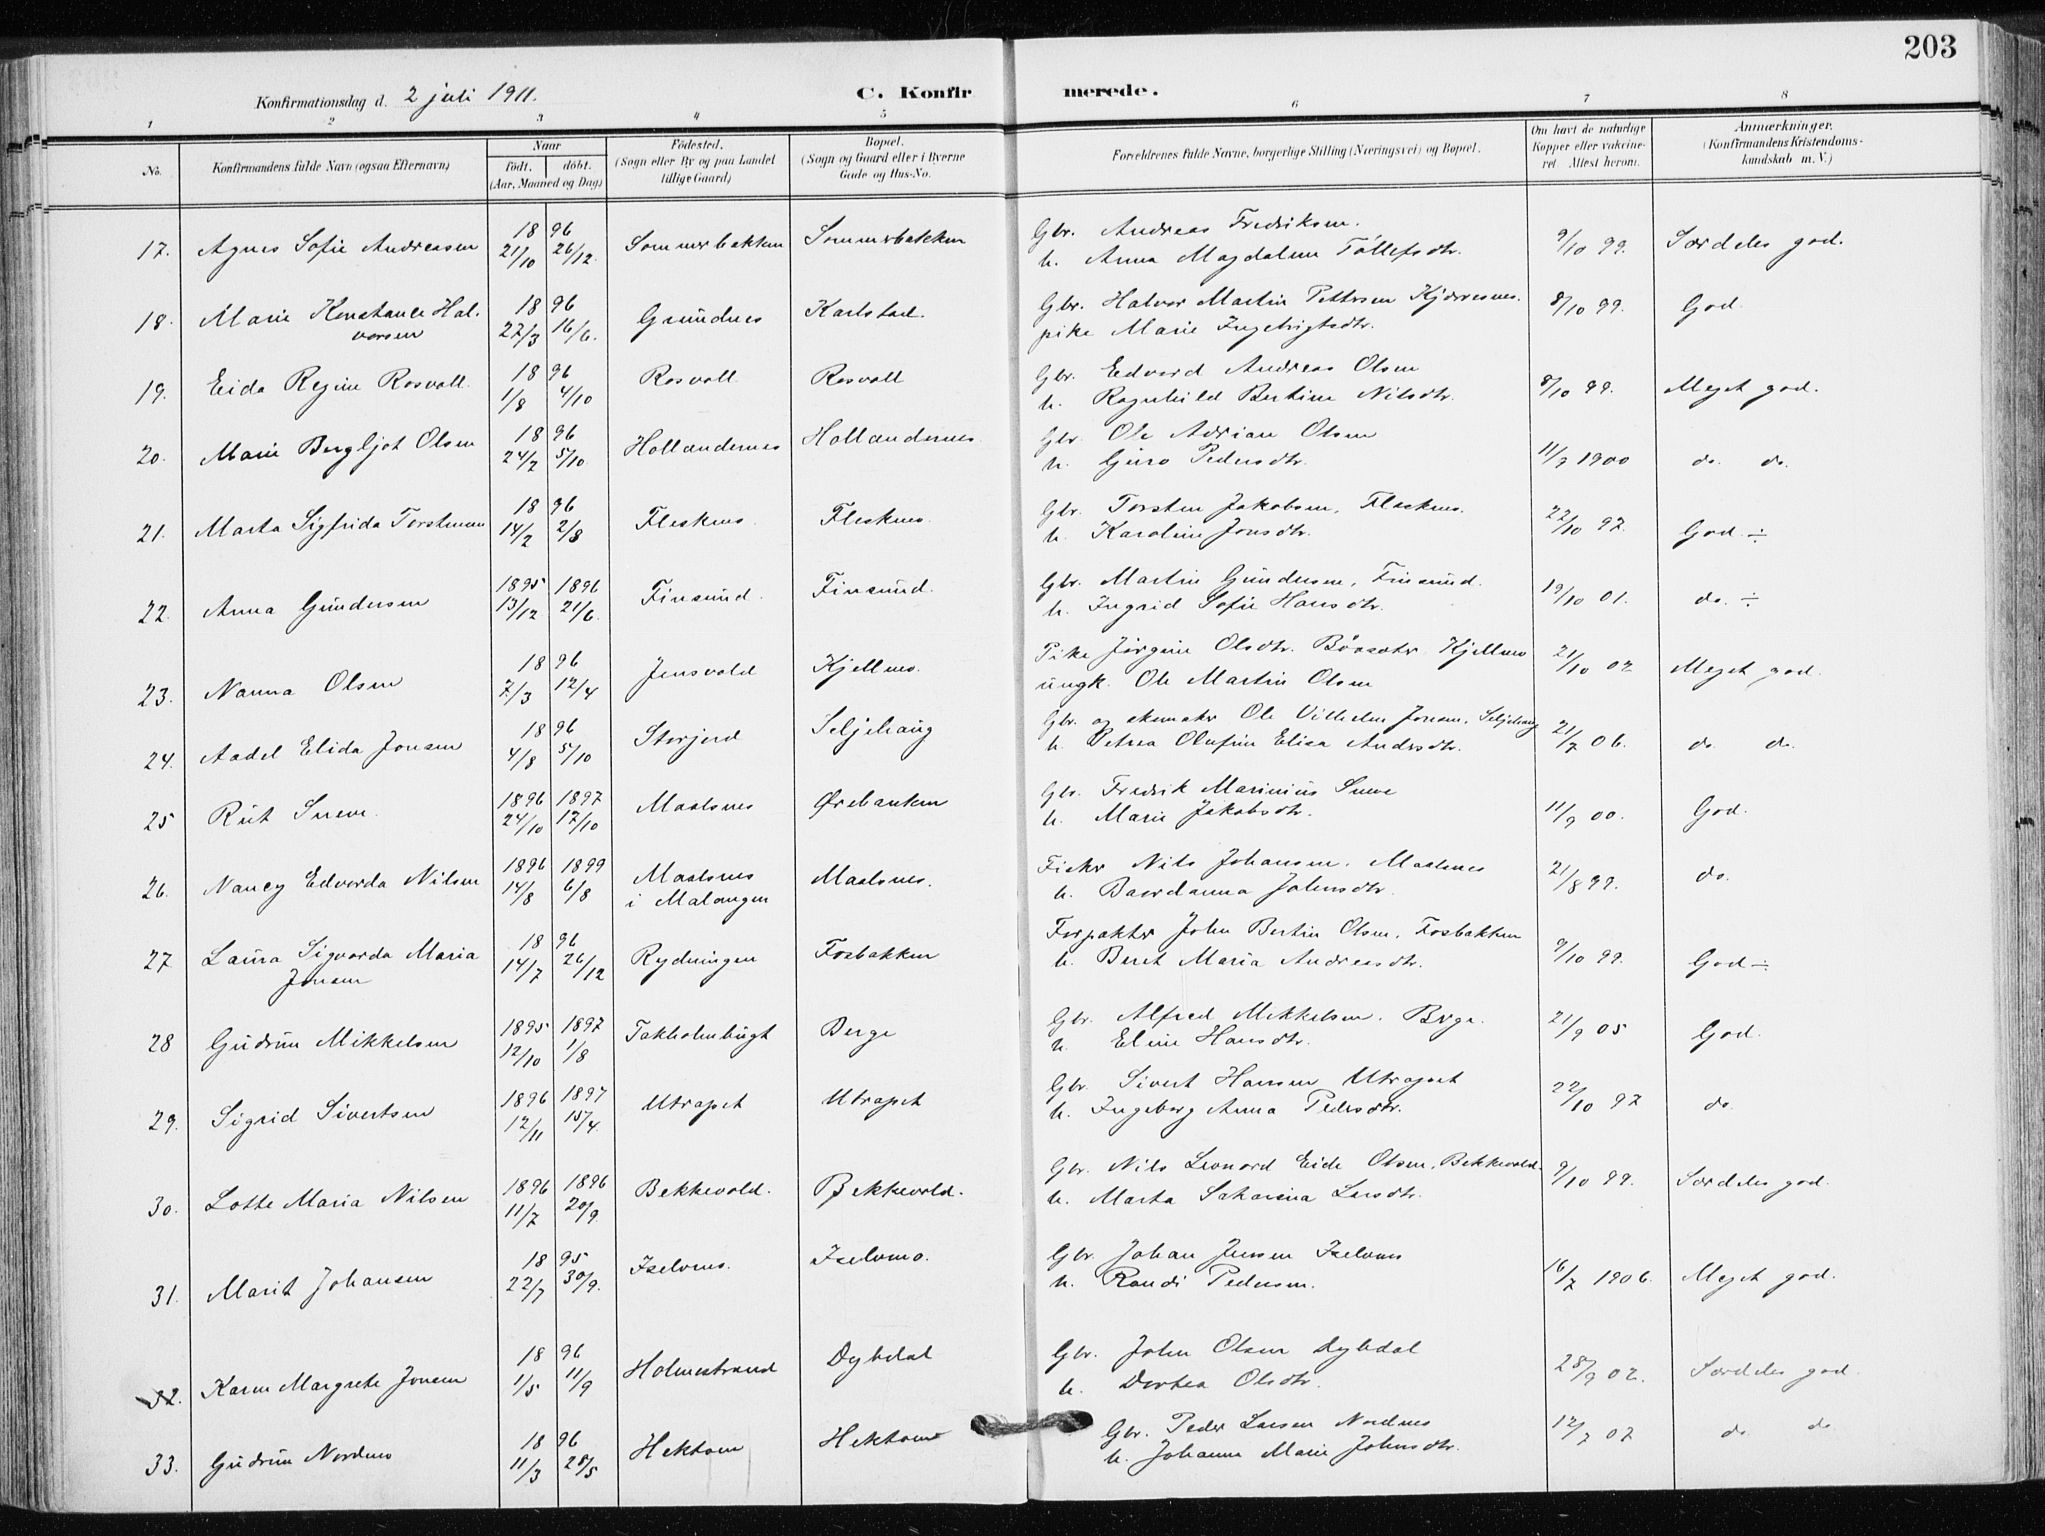 203
Konfirmationsdag d. 2 juli 1911. C. Konfirmerede.
1 2 3 4 5 6 7 8
No. Konfirmandens fulde Navn (ogsaa Efternavn) Naar født. døbt. (Aar, Maaned og Dag) Fødested. (Sogn eller By og paa Landet tillige Gaard) Bopæl. (Sogn og Gaard eller i Byerne Gade og Hus-No. Forældrenes fulde Navne, borgerlige Stilling (Næringsvei) og Bopæl. Om havt de naturlige Kopper eller vakcineret. Attest herom. Anmærkninger. (Konfirmandens Kristendomskundskab m. V.)
17. Agnes Sofie Andreasen 1896 21/10 26/12. Sommerbakken Sommerbakken Gbr. Andreas Fredriksen.
h. Anna Magdalena Tollefsdtr. 9/10 99. Særdeles god.
18. Marie Konstanse Halvorsen 1896 27/3 16/6. Grundnes Karlstad. Gbr. Halvor Martin Pettersen Kjærresnes.
pike Marie Ingebrigtsdtr. 8/10 99. God.
19. Eida Regine Rosvoll. 1896 1/8 4/10 Rosvoll Rosvoll Gbr. Edvard Andreas Olsen
h. Ragnhild Bertine Nilsdtr. 8/10 99. Meget god.
20. Marie Bergljot Olsen 1896 24/2 5/10. Hollendernes Hollendernes Gbr. Ole Adrian Olsen
h. Guro Pedersdtr. 11/9 1900 do. do.
21. Marta Sigfrida Torstensen 1896 14/2 2/8 Flesknes. Flesknes. Gbr. Torsten Jakobsen, Flesknes.
h. Karoline Jonsdtr. 22/10 97. God. ÷
22. Anna Gundersen 1895 13/12 1896 21/6. Finsund. Finsund. Gbr. Martin Gundersen, Finsund.
h. Ingrid Sofie Hansdtr. 19/10 01. do. ÷
23. Nanna Olsen 1896 7/3 12/4 Jensvold Kjellnes. Pike Jørgine Olsdtr. Bønsæter Kjellnes
ungk. Ole Martin Olsen 21/10 02 Meget god.
24. Aadel Elida Jonsen 1896 4/8 5/10 Storjord Seljehaug Gbr. og skomaker Ole Vilhelm Jonsen, Seljehaug
h. Petrea Olufine Elisa Andersdtr. 21/7 06. do. do.
25 Rut Sneve. 1896 24/10 1897 17/10 Maalsnes Ørebanken Gbr. Fredrik Marinius Sneve
h. Marie Jakobsdtr. 11/9 00. God.
26. Nancy Edvarda Nilsen 1896 14/8 1899 6/8 Maalsnes i Malangen Maalsnes. Fisker Nils Johansen, Maalsnes
h. Baordanna Johnsdtr. 21/8 99. do.
27 Laura Sigvarda Maria Jensen 1896 14/7 26/12 Rydningen Fosbakken Forpakter John Bertin Olsen, Fosbakken
h. Beret Maria Andreasdtr. 9/10 99. God ÷
28 Gudrun Mikkelsen 1895 12/10 1897 1/8 Takholmbugt Berge Gbr. Alfred Mikkelsen. Berge.
h. Eline Hansdtr. 21/9 05 God.
29. Sigrid Sivertsen 1896 12/11 1897 15/4. Utrapet Utrapet Gbr. Sivert Hansen Utrapet
h. Ingeborg Anna Pedersdtr. 22/10 97 do.
30. Lotte Maria Nilsen 1896 11/7 1896 20/9. Bekkevold. Bekkevold. Gbr. Nils Leonard Eide Olsen, Bekkevold.
h. Marta Sakarina Larsdtr. 9/10 99. Særdeles god.
31. Marit Johansen 1895 22/7 30/9. Iselvmo. Iselvmo. Gbr. Johan Jensen Iselvmo
h. Randi Pedersen. 16/7 1906. Meget god.
32. Karen Margrete Jonsen 1896 1/5 11/9 Holmestrand Dybdal Gbr. John Olsen Dybdal
h. Dortea Olsdtr. 28/9 02. Særdeles god.
33. Gudrun Nordnes 1896 11/3 28/5 Hektoen Hektoen Gbr. Peder Larsen Nordnes
h. Johanna Marie Johnsdtr. 12/7 07 do do